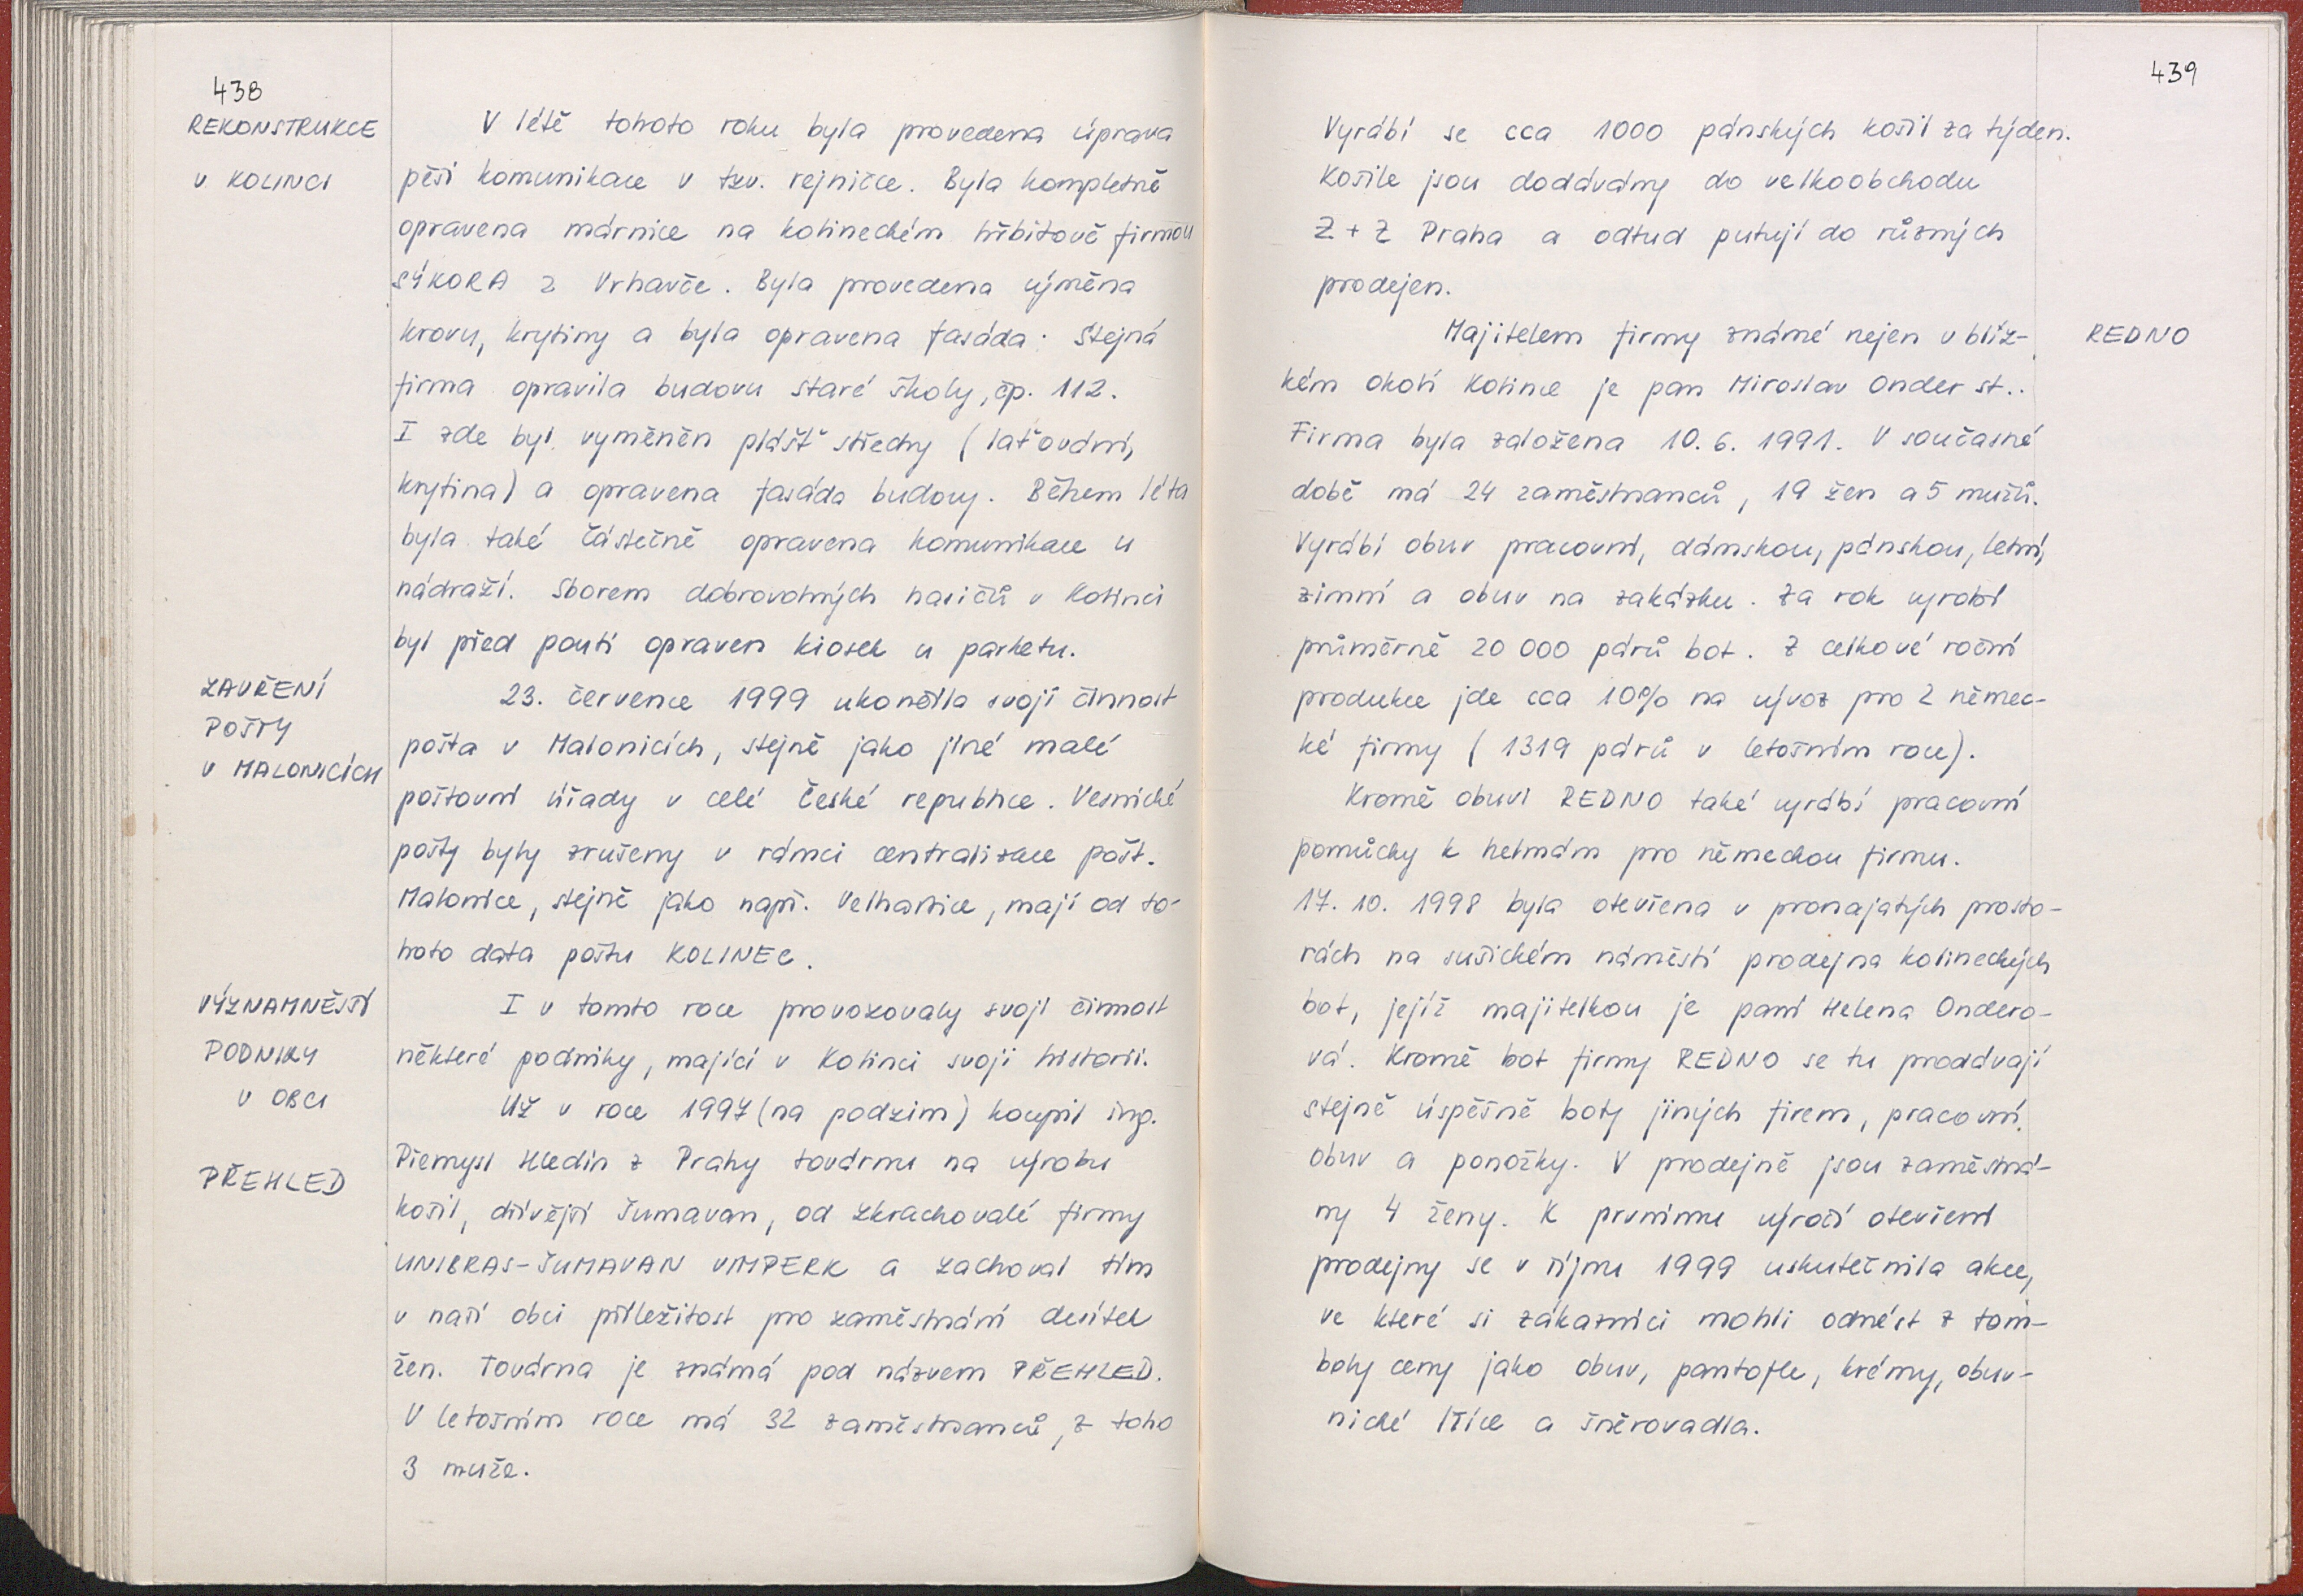 438
REKONSTRUKCE
V KOLINCI
V létě tohoto roku byla provedena úprava
pěší komunikace v tzv. rejničce. Byla kompletně
opravena márnice na kolineckém hřbitově firmou
SÝKORA z Vrhavče. Byla provedena výměna
krovu, krytiny a byla opravena fasáda. Stejná
firma opravila budovu staré školy, čp. 112.
I zde byl vyměněn plášť střechy (laťování,
krytina) a opravena fasáda budovy. Během léta
byla také částečně opravena komunikace u
nádraží. Sborem dobrovolných hasičů v Kolinci
byl před poutí opraven kiosek u parketu.
ZAVŘENÍ
POŠTY
V MALONICÍCH
23. července 1999 ukončila svoji činnost
pošta v Malonicích, stejně jako jiné malé
poštovní úřady v celé České republice. Vesnické
pošty byly zrušeny v rámci centralizace pošt.
Malonice, stejně jako např. Velhartice, mají od to-
hoto data poštu KOLINEC.
VÝZNAMNĚJŠÍ
PODNIKY
V OBCI
I v tomto roce provozovaly svoji činnost
některé podniky, mající v Kolinci svoji historii.
PŘEHLED
Už v roce 1997 (na podzim) koupil ing.
Přemysl Hledin z Prahy továrnu na výrobu
košil, dřívější Šumavan, od zkrachovalé firmy
UNIBRAS-ŠUMAVAN VIMPERK a zachoval tím
v naší obci příležitost pro zaměstnání desítek
žen. Továrna je známá pod názvem PŘEHLED.
V letošním roce má 32 zaměstnanců, z toho
3 muže.
439
Vyrábí se cca 1000 pánských košil za týden.
Košile jsou dodávány do velkoobchodu
Z + Z Praha a odtud putují do různých
prodejen.
REDNO
Majitelem firmy známé nejen v blíz-
kém okolí Kolince je pan Miroslav Onder st..
Firma byla založena 10. 6. 1991. V současné
době má 24 zaměstnanců, 19 žen a 5 mužů.
Vyrábí obuv pracovní, dámskou, pánskou, letní,
zimní a obuv na zakázku. Za rok vyrobí
průměrně 20 000 párů bot. Z celkové roční
produkce jde cca 10% na vývoz pro 2 němec-
ké firmy (1319 párů v letošním roce).
Kromě obuvi REDNO také vyrábí pracovní
pomůcky k helmám pro německou firmu.
17. 10. 1998 byla otevřena v pronajatých prosto-
rách na sušickém náměstí prodejna kolineckých
bot, jejíž majitelkou je paní Helena Ondero-
vá. Kromě bot firmy REDNO se tu prodávají
stejně úspěšně boty jiných firem, pracovní
obuv a ponožky. V prodejně jsou zaměstná-
ny 4 ženy. K prvnímu výročí otevření
prodejny se v říjnu 1999 uskutečnila akce,
ve které si zákazníci mohli odnést z tom-
boly ceny jako obuv, pantofle, krémy, obuv-
nické lžíce a šněrovadla.